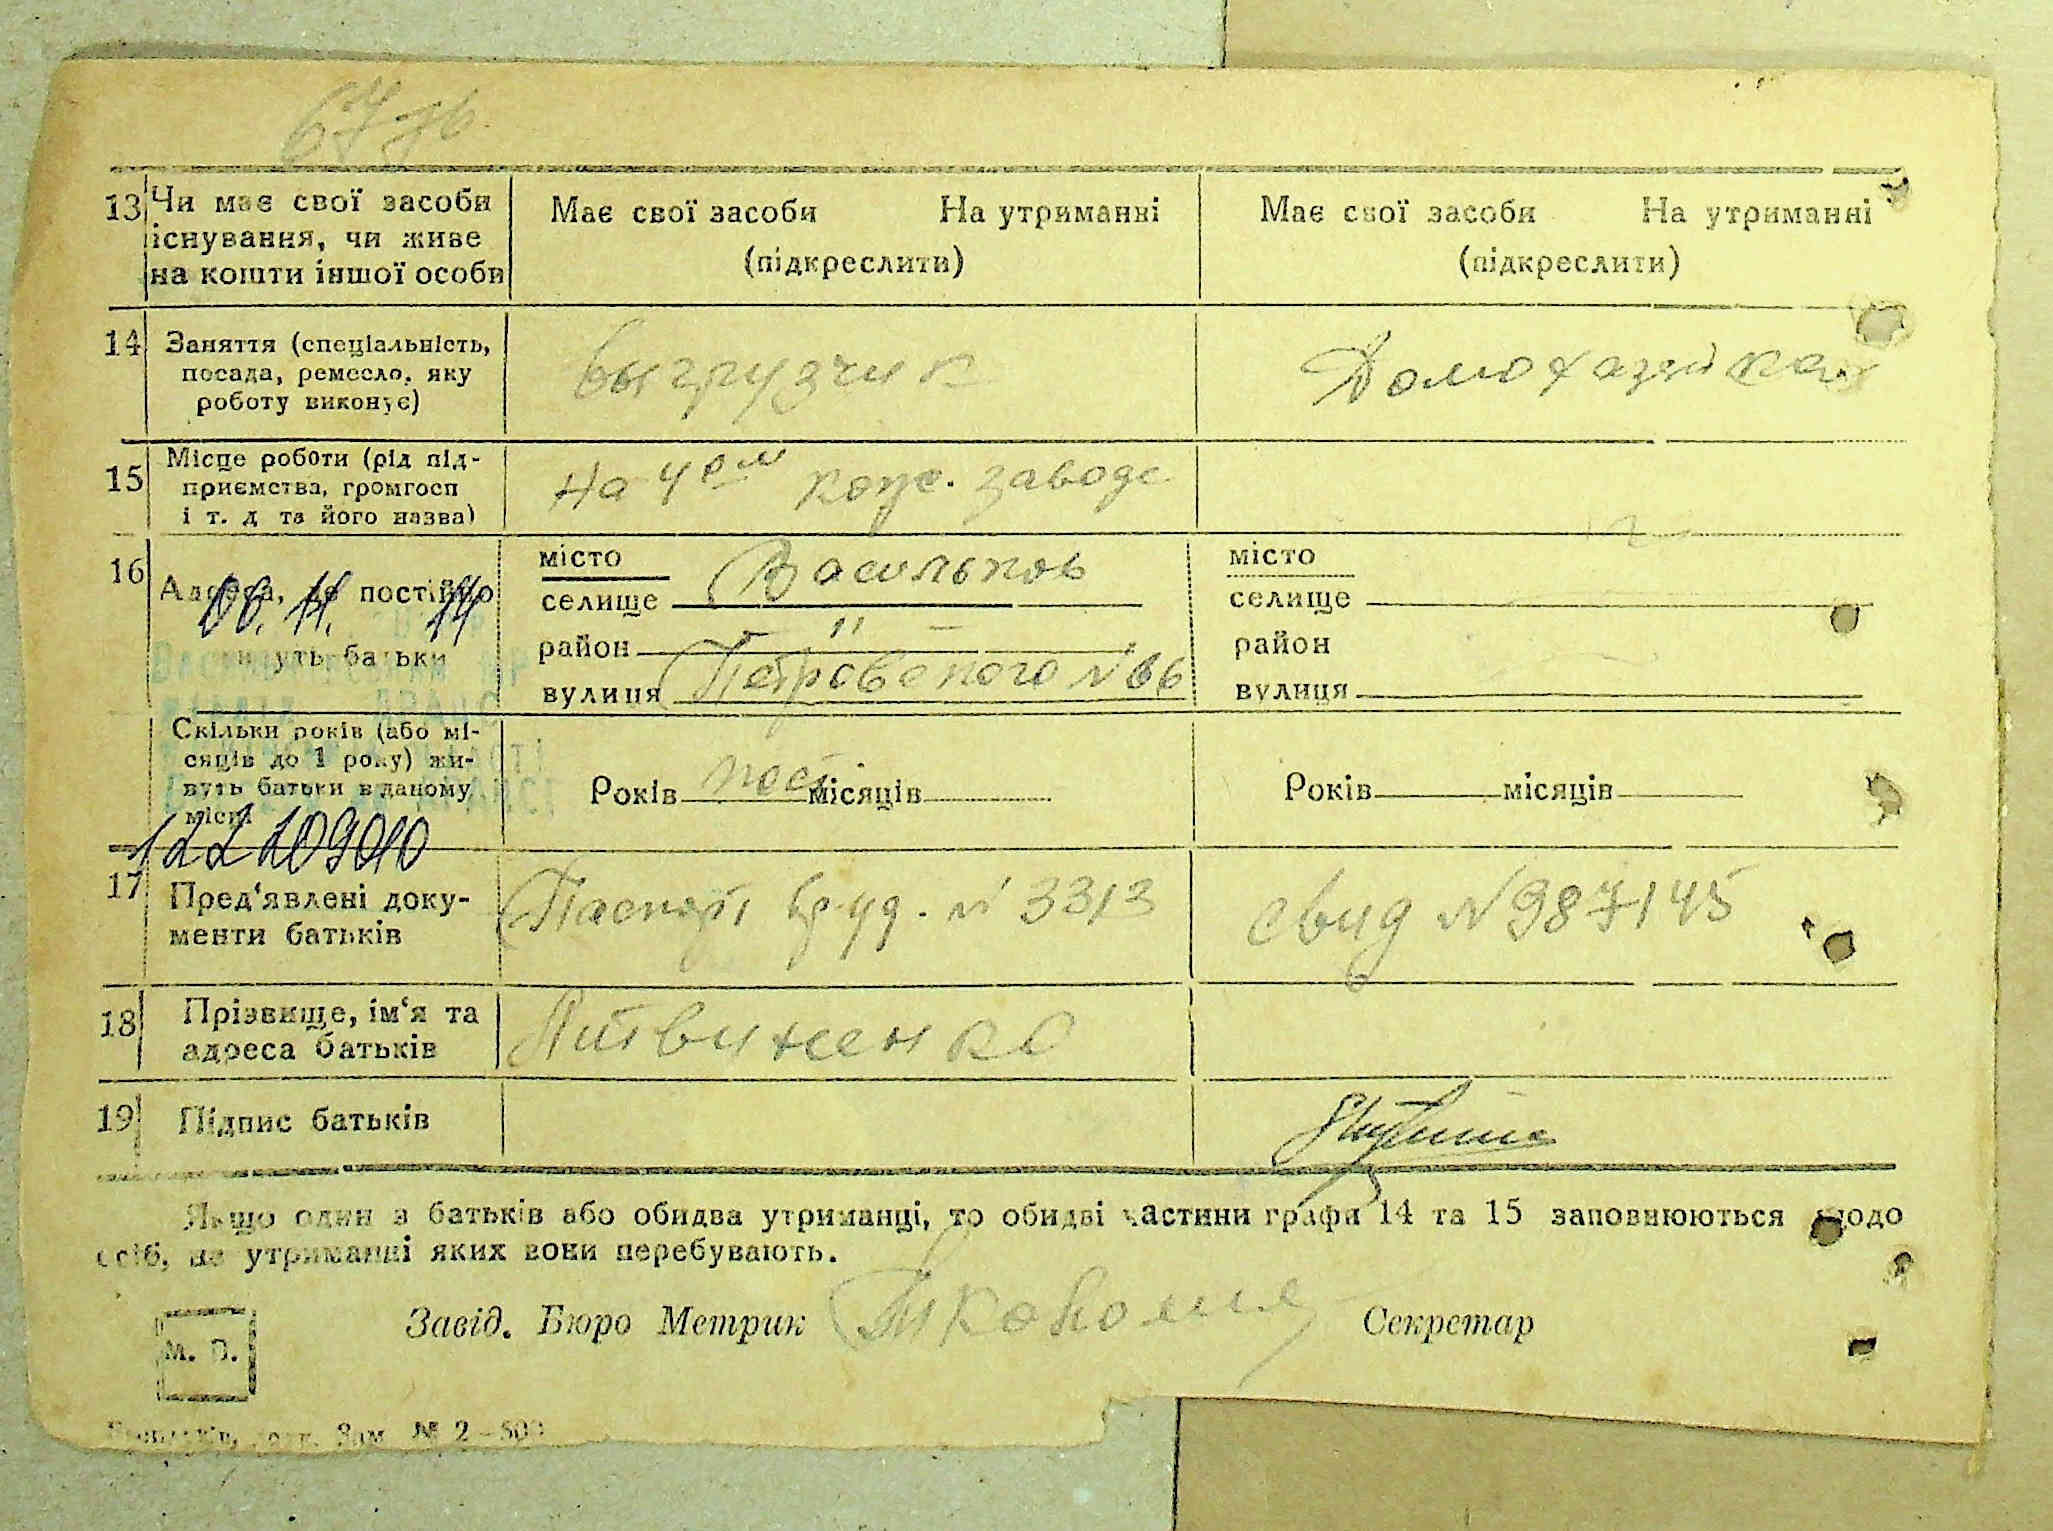 13 Чи має свої засоби існування, чи живе на кошти іншої особи
Має свої засоби На утриманні
(підкреслити)
Має свої засоби На утриманні
(підкреслити)
14 Заняття (спеціальність,
посада, ремесло, яку
роботу виконує)
выгрузчик
Домохазяйка
15 Місце роботи (рід під-
приємства, громгосп
і т. д та його назва)
На 4ом кож. заводе
16 Адреса, де постійно
живуть батьки
06. 11. 14
місто Васильков
селище
район "
вулиця Петровского № 66
місто
селище
район
вулиця
Скільки років (або мі-
сяців до 1 року) жи-
вуть батьки в даному
місці
Років пост місяців
Років місяців
122 209010
17 Пред'явлені доку-
менти батьків
Паспорт № 3313
свид № 987145
18 Прізвище, ім'я та
адреса батьків
Литвиненко
19 Підпис батьків
Якщо один з батьків або обидва утриманці, то обидві частини графи 14 та 15 заповнюються щодо
осіб, на утриманні яких вони перебувають.
М. П.
Завід. Бюро Метрик
Секретар
Зам. № 2—500